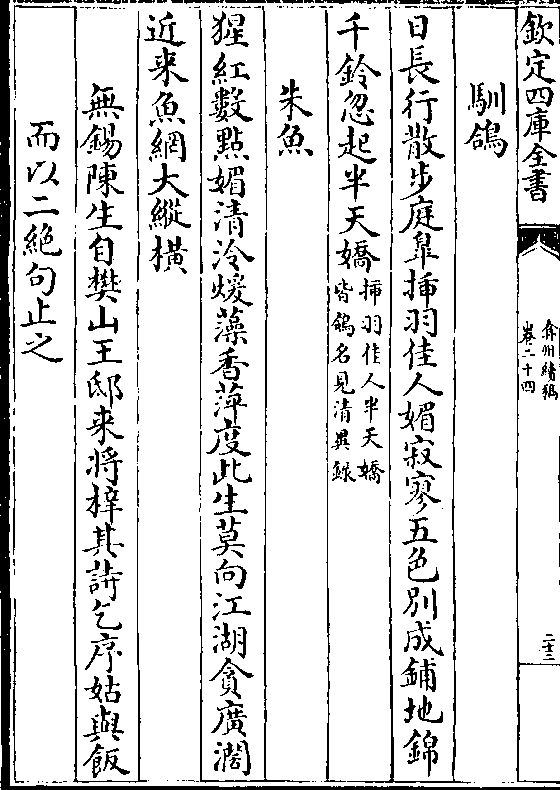 欽定四庫全書
弇州續稿
卷二十四
二十三
馴鴿
日長行散步庭臯揷羽佳人媚寂寥五色別成鋪地錦
千鈴忽起半天嬌揷羽佳人半天嬌
皆鴿名見清異録
朱魚
猩紅數點媚清泠煖藻香萍度此生莫向江湖貪廣濶
近来魚網大縱橫
無錫陳生自樊山王邸来将梓其詩乞序姑與飯
而以二絶句止之